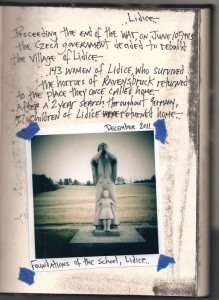 Lidice.
Proceeding the end of the WAR, on JUNE 10 1945
the Czech government decided to rebuild
the village of Lidice.
143 women of Lidice, who survived
the horrors of RAVENSBRUCK returned
to the place they once called home.
After a 2 year search throughout Germany,
17 children of Lidice were returned home.
December 2011.
Foundations of the school, Lidice.